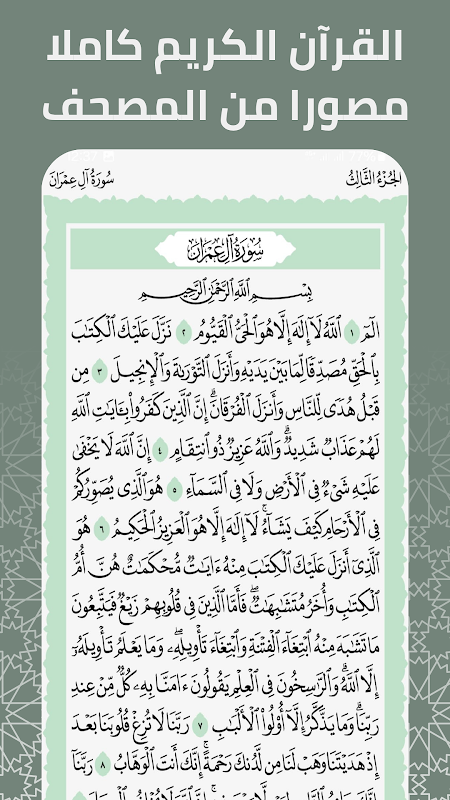 القرآن الكريم كاملا
مصورا من المصحف
الجُزْءُ الثَّالِثُ
سُورَةُ آلِ عِمْرَانَ
سُورَةُ آلِ عِمْرَانَ
بِسْمِ ٱللَّهِ ٱلرَّحْمَٰنِ ٱلرَّحِيمِ
الٓمٓ ١ ٱللَّهُ لَآ إِلَٰهَ إِلَّا هُوَ ٱلْحَىُّ ٱلْقَيُّومُ ٢ نَزَّلَ عَلَيْكَ ٱلْكِتَٰبَ
بِٱلْحَقِّ مُصَدِّقًا لِّمَا بَيْنَ يَدَيْهِ وَأَنزَلَ ٱلتَّوْرَىٰةَ وَٱلْإِنجِيلَ ٣ مِن
قَبْلُ هُدًى لِّلنَّاسِ وَأَنزَلَ ٱلْفُرْقَانَ ۗ إِنَّ ٱلَّذِينَ كَفَرُوا۟ بِـَٔايَٰتِ ٱللَّهِ
لَهُمْ عَذَابٌ شَدِيدٌ ۗ وَٱللَّهُ عَزِيزٌ ذُو ٱنتِقَامٍ ٤ إِنَّ ٱللَّهَ لَا يَخْفَىٰ
عَلَيْهِ شَىْءٌ فِى ٱلْأَرْضِ وَلَا فِى ٱلسَّمَآءِ ٥ هُوَ ٱلَّذِى يُصَوِّرُكُمْ
فِى ٱلْأَرْحَامِ كَيْفَ يَشَآءُ ۚ لَآ إِلَٰهَ إِلَّا هُوَ ٱلْعَزِيزُ ٱلْحَكِيمُ ٦ هُوَ
ٱلَّذِىٓ أَنزَلَ عَلَيْكَ ٱلْكِتَٰبَ مِنْهُ ءَايَٰتٌ مُّحْكَمَٰتٌ هُنَّ أُمُّ
ٱلْكِتَٰبِ وَأُخَرُ مُتَشَٰبِهَٰتٌ ۖ فَأَمَّا ٱلَّذِينَ فِى قُلُوبِهِمْ زَيْغٌ فَيَتَّبِعُونَ
مَا تَشَٰبَهَ مِنْهُ ٱبْتِغَآءَ ٱلْفِتْنَةِ وَٱبْتِغَآءَ تَأْوِيلِهِۦ ۗ وَمَا يَعْلَمُ تَأْوِيلَهُۥٓ
إِلَّا ٱللَّهُ ۗ وَٱلرَّٰسِخُونَ فِى ٱلْعِلْمِ يَقُولُونَ ءَامَنَّا بِهِۦ كُلٌّ مِّنْ عِندِ
رَبِّنَا ۗ وَمَا يَذَّكَّرُ إِلَّآ أُو۟لُوا۟ ٱلْأَلْبَٰبِ ٧ رَبَّنَا لَا تُزِغْ قُلُوبَنَا بَعْدَ
إِذْ هَدَيْتَنَا وَهَبْ لَنَا مِن لَّدُنكَ رَحْمَةً ۚ إِنَّكَ أَنتَ ٱلْوَهَّابُ ٨ رَبَّنَآ